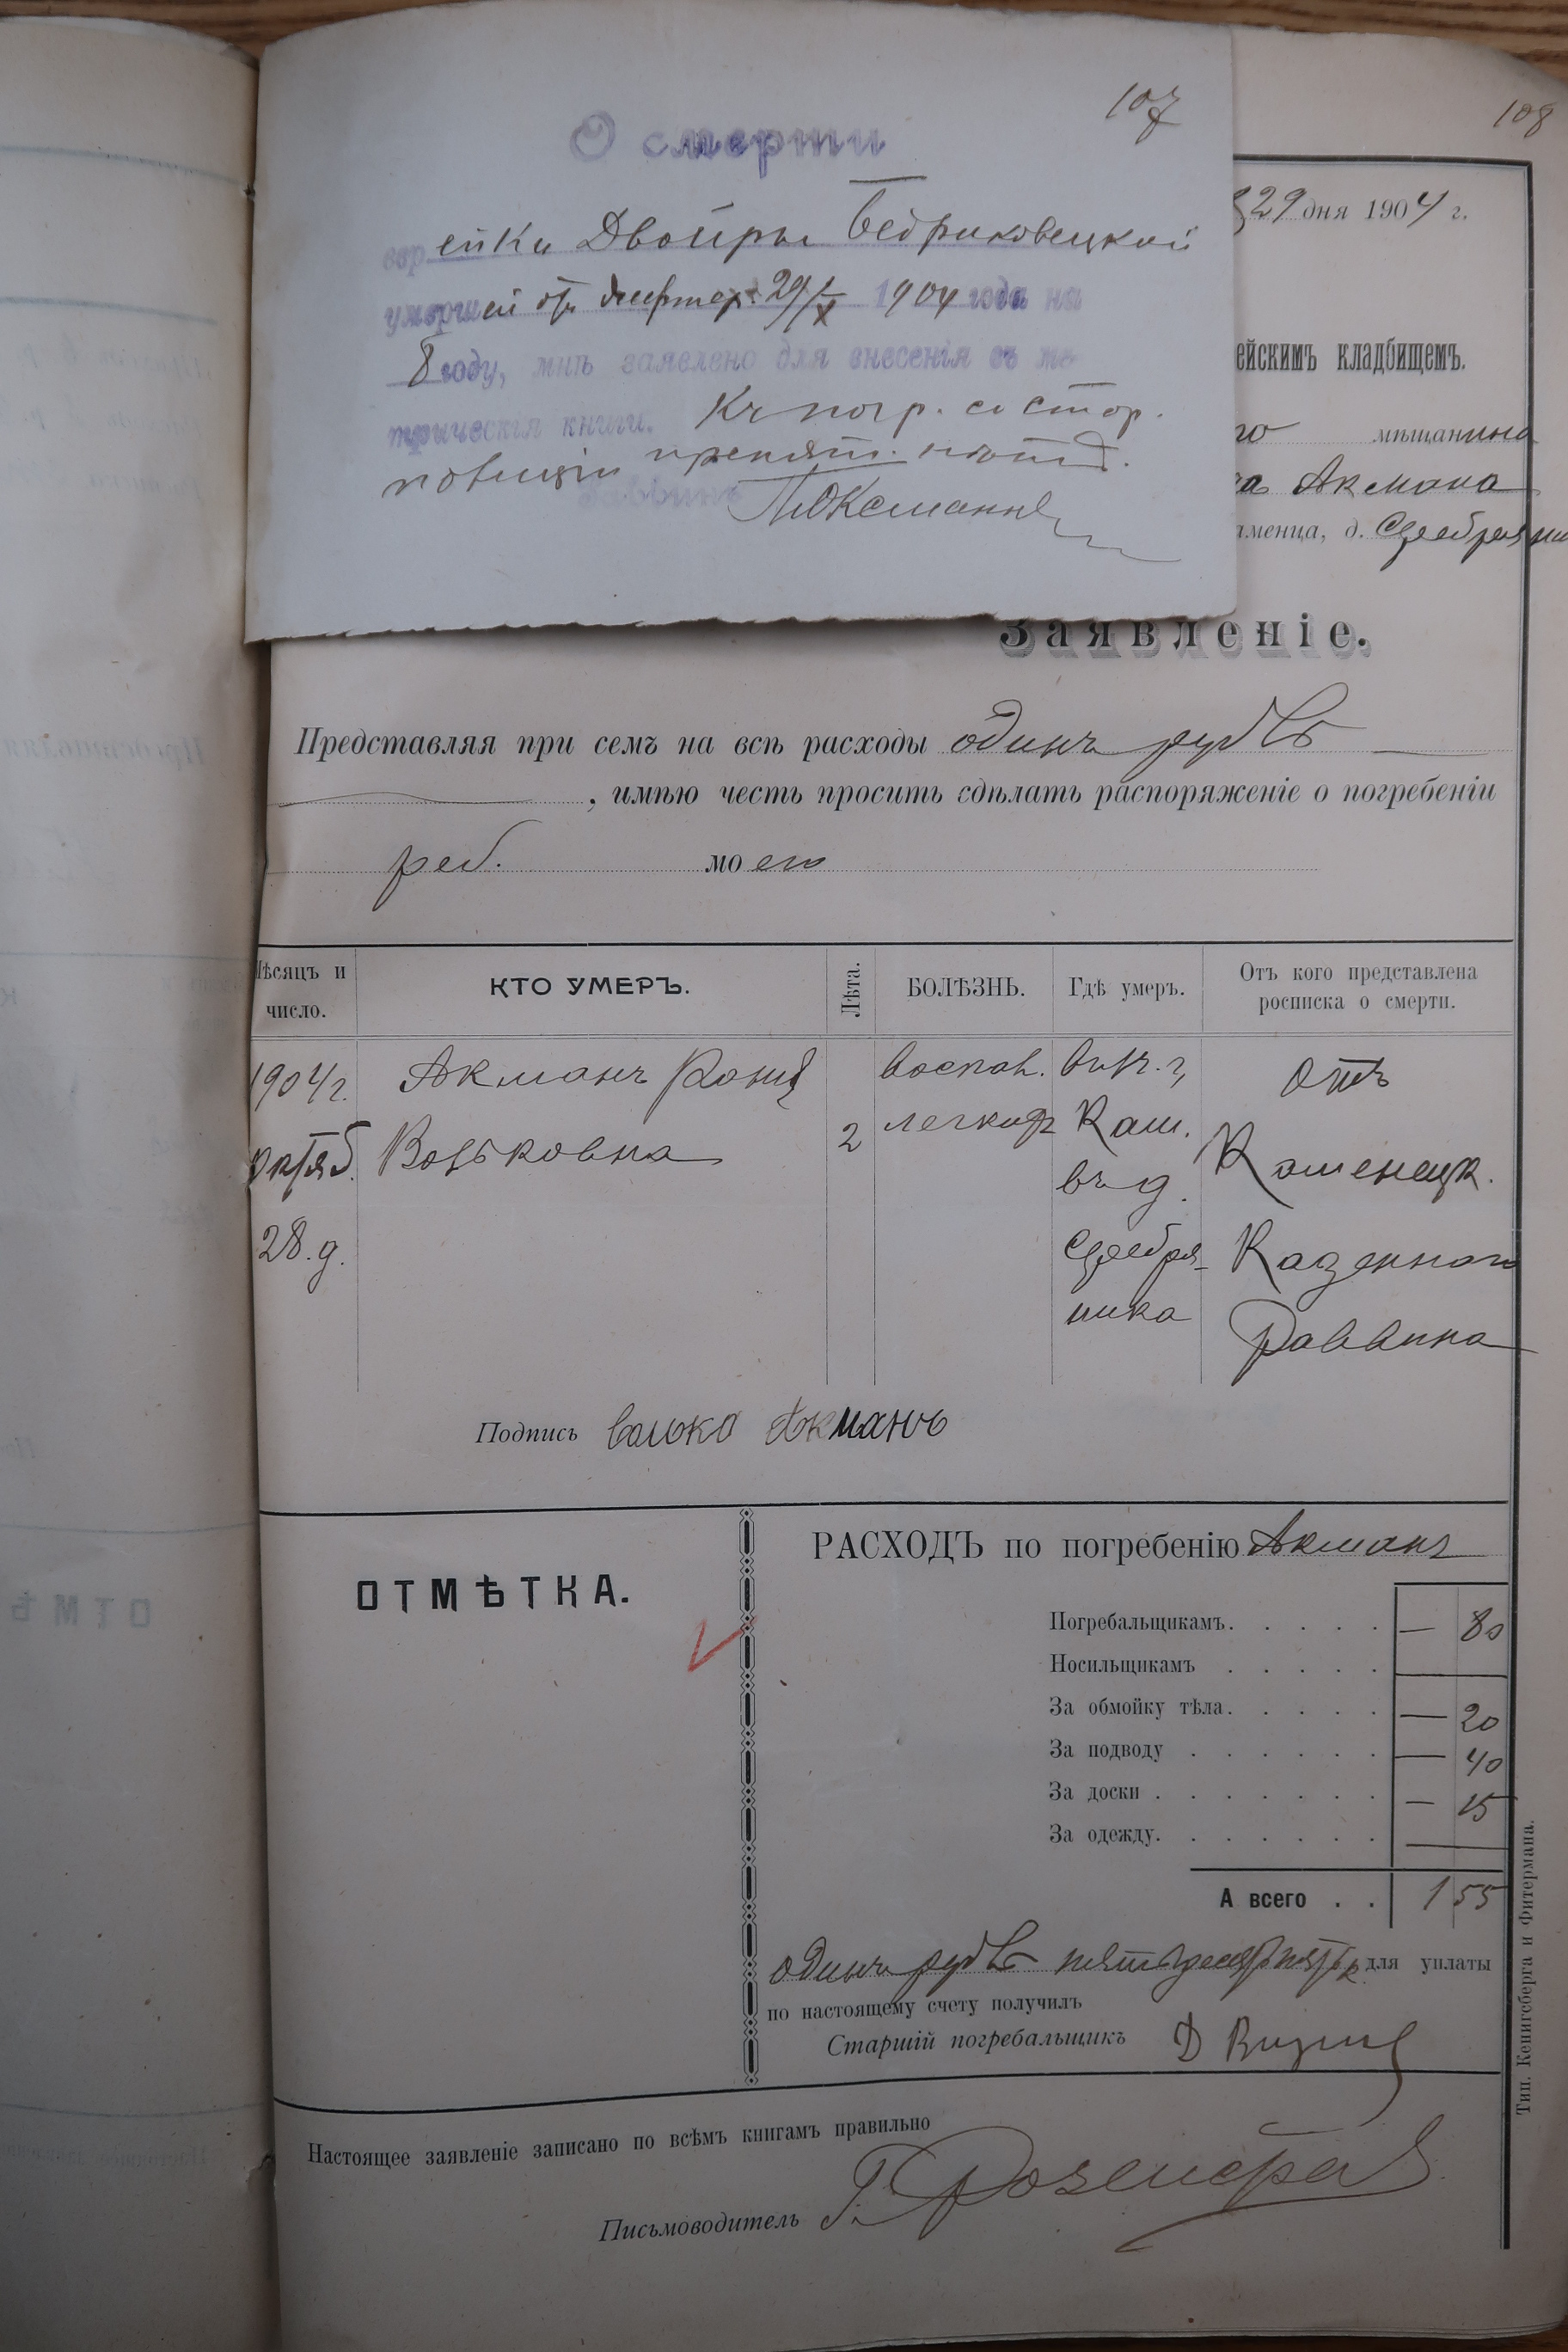 107
О смерти
еврейки Двойры Бедриковецкой
умершей отъ 29/X 1904 года на
8 году, мнѣ заявлено для внесенія въ ме
трическія книги. Къ погр. со стор.
полиціи препят. нѣтъ
108
29 дня 1904 г.
ейскимъ кладбищемъ.
го мѣщанина
ка Акмана
аменца, д. Сребряни
Заявленіе.
Представляя при семъ на всѣ расходы одинъ рубль
, имѣю честь просить сдѣлать распоряженіе о погребеніи
реб. моего
Мѣсяцъ и число.
КТО УМЕРЪ.
Лѣта.
БОЛѢЗНЬ.
Гдѣ умеръ.
Отъ кого представлена
росписка о смерти.
1904 г. Акманъ воспал. въ г. Отъ
Октяб. Вольковна 2 легких Кам. Каменецк.
въ д.
28 д. Сребря- Казеннаго
ника Раввина
Подпись Волько Акманъ
ОТМѢТКА.
РАСХОДЪ по погребенію Акманъ
Погребальщикамъ. . . . . — 80
Носильщикамъ . . . . . —
За обмойку тѣла. . . . . — 20
За подводу . . . . . . — 40
За доски . . . . . . . — 15
За одежду. . . . . . . —
А всего . . 1 55
одинъ рубль пятьдесятъ пять к. для уплаты
по настоящему счету получилъ
Старшій погребальщикъ Д
Настоящее заявленіе записано по всѣмъ книгамъ правильно
Письмоводитель
Тип. Кенигсберга и Фитермана.